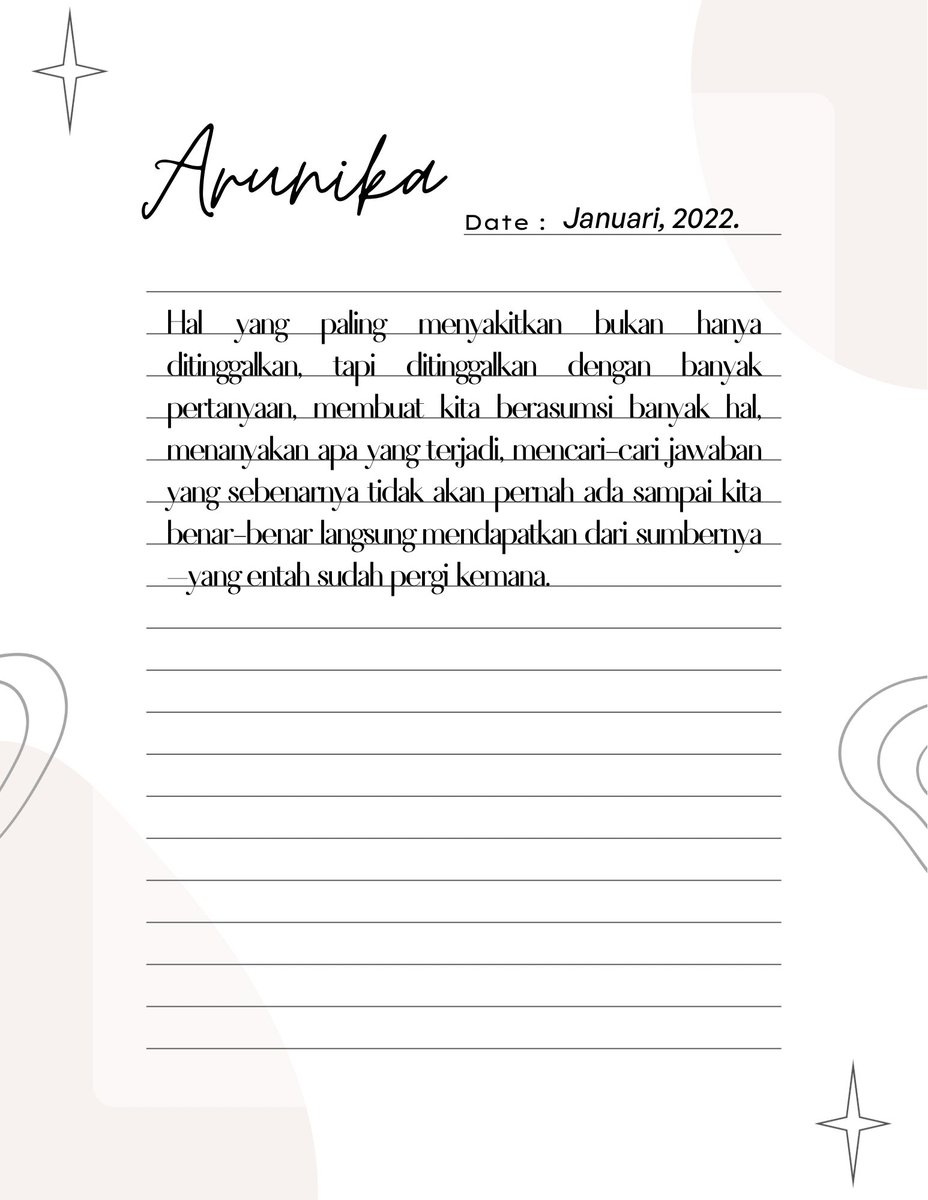 Arunika
Date : Januari, 2022.
Hal yang paling menyakitkan bukan hanya
ditinggalkan, tapi ditinggalkan dengan banyak
pertanyaan, membuat kita berasumsi banyak hal,
menanyakan apa yang terjadi, mencari-cari jawaban
yang sebenarnya tidak akan pernah ada sampai kita
benar-benar langsung mendapatkan dari sumbernya
—yang entah sudah pergi kemana.